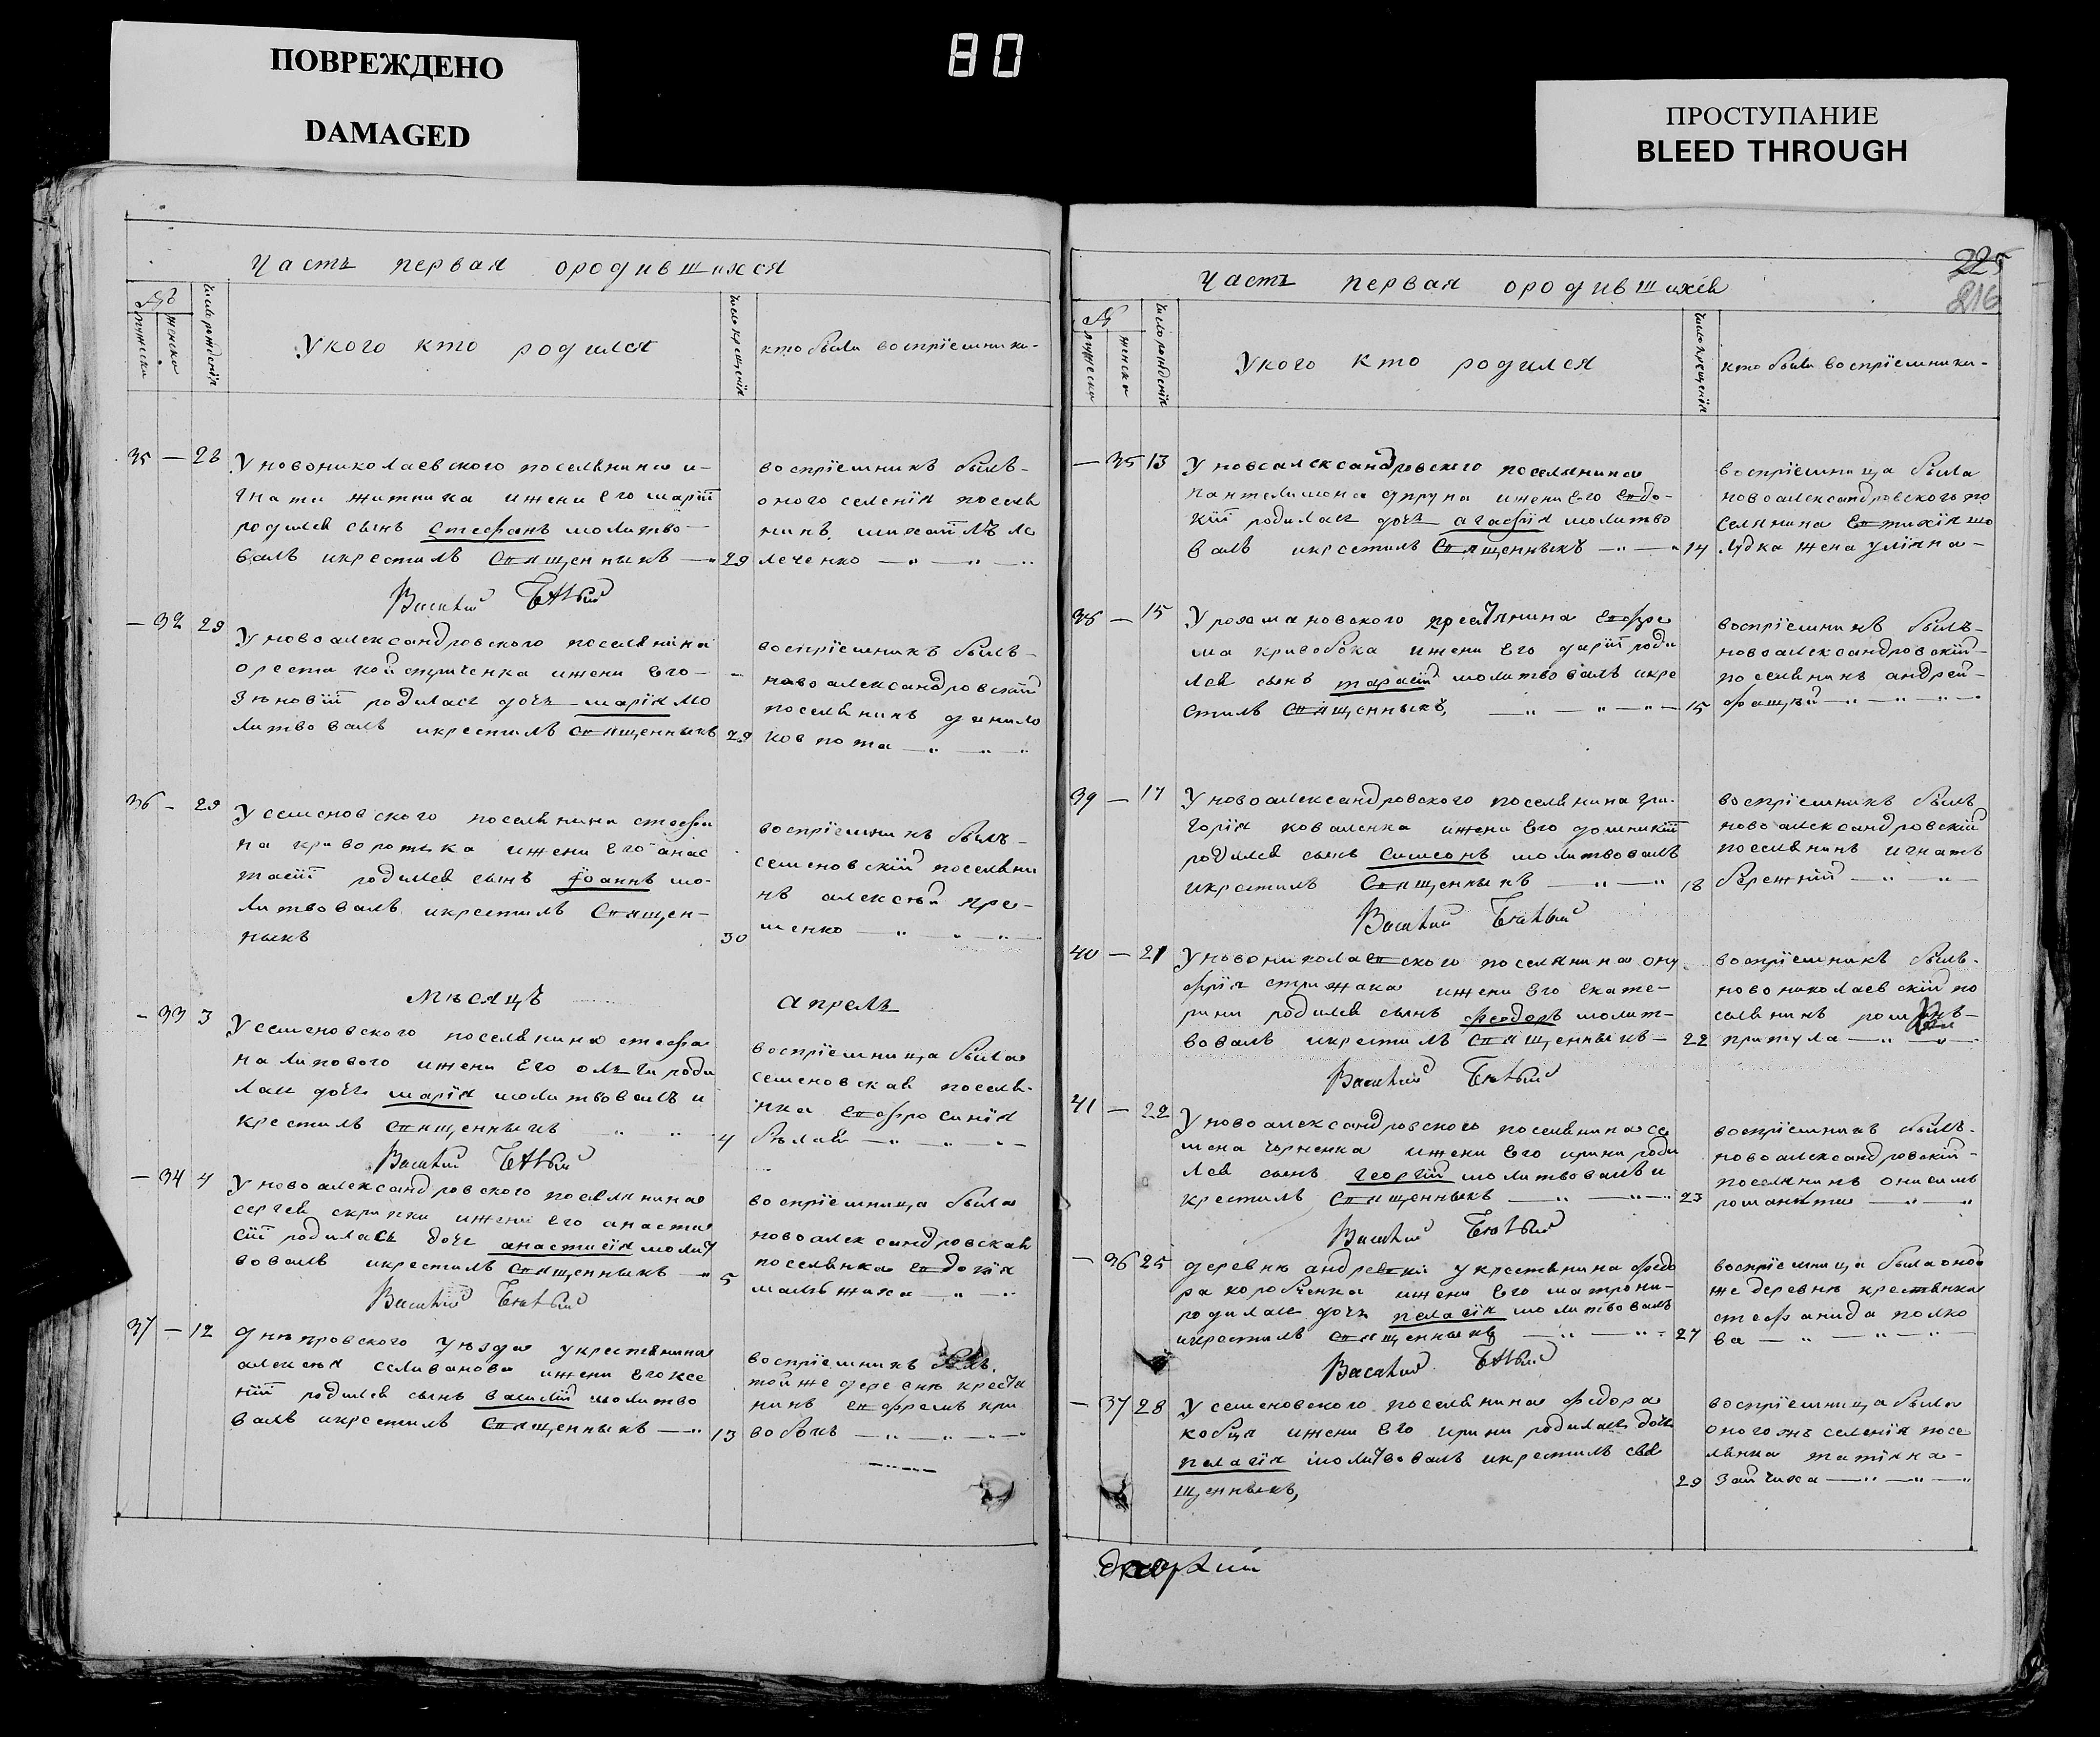 ПОВРЕЖДЕНО
DAMAGED
80
ПРОСТУПАНИЕ
BLEED THROUGH
Часть первая ородившихся
№
мужеска
женска
число рожденія
Укого кто родился
число крещенія
кто были воспріемники-
35 — 28 Уновониколаевского поселянина и-
гната житника ижени его маріи
родился сынъ Стефанъ молитво-
валъ икрестилъ Священныкъ — 29
воспріемникъ былъ-
оного селенія поселя
нинъ михаилъ
леченко — „ — „ —
Василій Бѣлый
— 32 29 Уновоалександровского поселянина
ореста ижени его-
Зѣновіи родилась дочь марія мо
литвовалъ икрестилъ Священныкъ 29
воспріемникъ былъ-
новоалександровскій
поселянинъ данило
ковпота — „ — „
36 — 29 Усеменовского поселянина стефа
на криворотька ижени его анас
тасіи родился сынъ Іоаннъ мо-
литвовалъ икрестилъ Священ-
ныкъ 30
воспріемникъ былъ-
семеновскій поселяни
нъ алексѣй
менко — „ — „ — „
Мѣсяцъ апрель
— 33 3 Усеменовского поселянина стефа
на липового ижени его ольги роди
лась дочь марія молитвовалъ и
крестилъ Священныкъ „ „ 4
воспріемница была
семеновская поселя-
нка евфросинія
бѣлая — „ — „ —
Василій Бѣлый
— 34 4 Уновоалександровского поселянина
сергея скрипки ижени его анаста
сіи родилась дочь анастасія молит
вовалъ икрестилъ Священныкъ — 5
воспріемница была
новоалександровская
поселянка евдокія
мальжиха — „ — „
Василій Бѣлый
37 — 12 днѣпровского уѣзда укрестянина
алексѣя селиванова ижени его ксе
ніи родился сынъ василій молитво
валъ икрестилъ Священныкъ — 13
воспріемникъ былъ.
тойже деревнѣ крестя
нинъ ефремъ кри
вобокъ — „ — „ — „
225
216
Часть первая ородившихся
№
мужеска
женска
число рожденія
Укого кто родился
число крещенія
кто были воспріемники-
— 35 13 Уновоалександровского поселянина
пантелимона дпруна ижени его евдо-
кіи родилась дочь агафія молитво
валъ икрестилъ Священныкъ — „ — 14
воспріемница была
новоалександровского по
селянина евтихія шо
лудка жена уліяна-
38 — 15 Урохмановского крестянина ефре
ма кривобока ижени его даріи роди
лся сынъ тарасій молитвовалъ икре
стилъ Священныкъ, — „ — „ — 15
воспріемникъ былъ-
новоалександровскій-
поселянинъ андрей-
— „ — „ — „
39 — 17 Уновоалександровского поселянина гри-
горія коваленка ижени его домникіи
родился сынъ Симеонъ молитвовалъ
икрестилъ Священныкъ — „ — „ 18
воспріемникъ былъ
новоалександровскій
поселянинъ игнатъ
бережній — „ — „
Василій Бѣлый
40 — 21 Уновониколаевского поселянина ону
фрія стрижака ижени его екате-
рини родился сынъ феодоръ молит-
вовалъ икрестилъ Священныкъ — 22
воспріемникъ былъ-
новониколаевскій по
селянинъ романъ-
притула — „ — „
Василій Бѣлый
41 — 22 Уновоалександровского поселянина се
мена чорненка ижени его ирини роди
лся сынъ георгій молитвовалъ и
крестилъ Священныкъ — „ — „ 23
воспріемникъ былъ-
новоалександровскій-
поселянинъ онисимъ
— „ — „
Василій Бѣлый
— 36 25 деревнѣ андреевки укрестянина федо
ра коробченка ижени его матрони-
родилась дочь пелагія молитвовалъ
икрестилъ Священныкъ — „ — „ 27
воспріемница была оноя
же деревнѣ крестянка
стефанида полко
ва — „ — „ — „
Василій Бѣлый
— 37 28 Усеменовского поселянина федора
кобця ижени его ирини родилась дочь
пелагія молитвовалъ икрестилъ свя
щенныкъ, 29
воспріемница была
оногожъ селенія посе
лянка татіяна-
Зайчиха — „ — „ — „